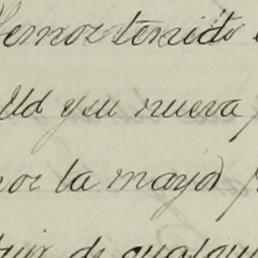 Hemos tenido
Ud y su nueva
por la mayor
de cualqui